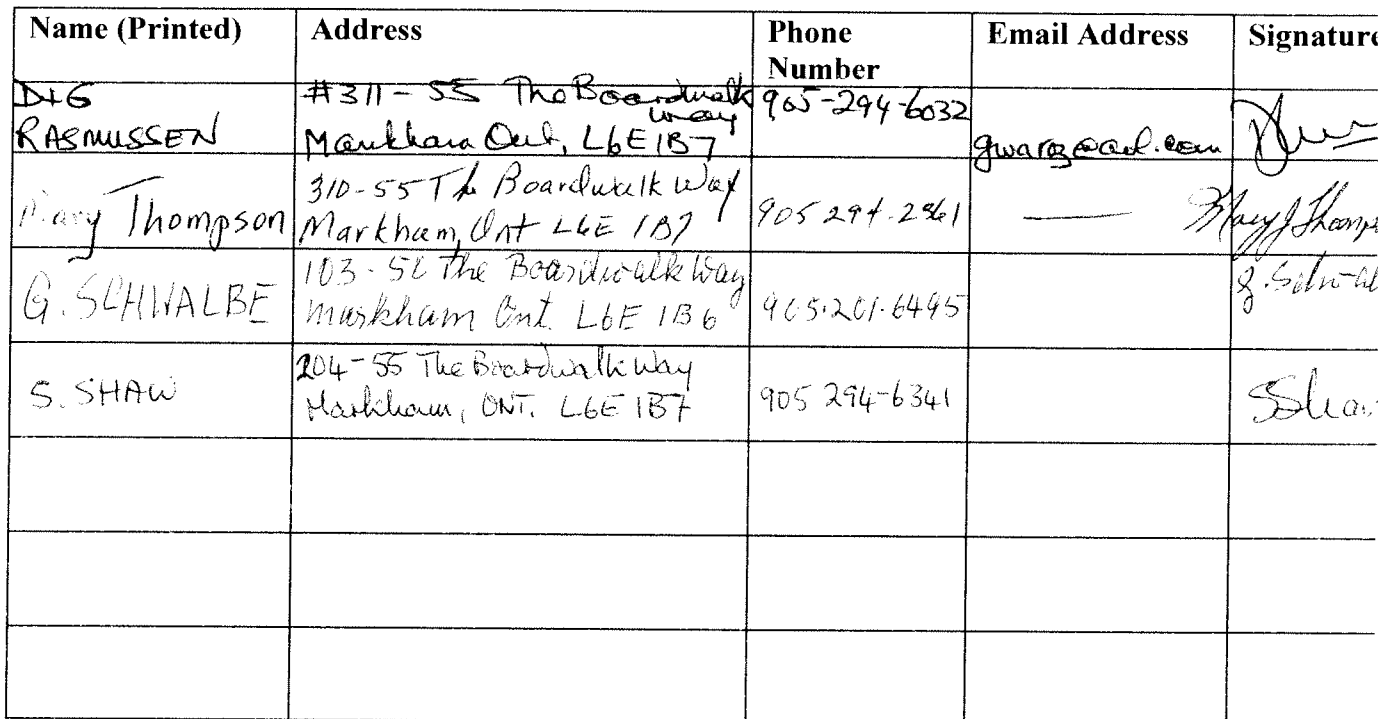 Name (Printed) Address Phone Number Email Address Signature
D+G RASMUSSEN
#311-55 The Boardwalk Way
Markham Ont, L6E 1B7
905-294-6032
Mary Thompson
310-55 The Boardwalk Way
Markham, Ont L6E 1B7
905 294-2561
—
Mary J Thomps
G. SCHWALBE
103-50 The Boardwalk Way
Markham Ont. L6E 1B6
905.201.6495
S. SHAW
204-55 The Boardwalk Way
Markham, ONT. L6E 1B7
905 294-6341
SShaw